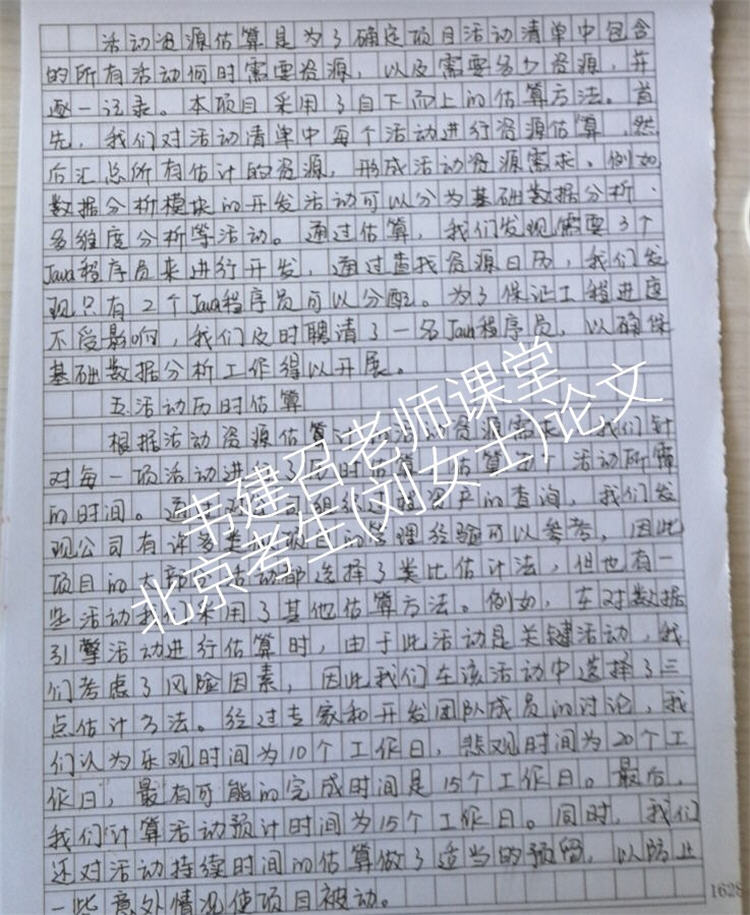 活动资源估算是为了确定项目活动清单中包含
的所有活动何时需要资源，以及需要多少资源，并
逐一记录。本项目采用了自下而上的估算方法。首
先，我们对活动清单中每个活动进行资源估算，然
后汇总所有估计的资源，形成活动资源需求。例如
数据分析模块的开发活动可以分为基础数据分析、
多维度分析等活动。通过估算，我们发现需要3个
Java程序员来进行开发，通过查找资源日历，我们发
现只有2个Java程序员可以分配。为了保证工程进度
不受影响，我们及时聘请了一名Java程序员，以确保
基础数据分析工作得以开展。
五.活动历时估算
根据活动资源估算 活动资源需求，我们针
对每一项活动进行了历时估算，估算出 活动所需
的时间。通 组织过程资产的查询，我们发
现公司有许多类似项目的管理经验可以参考，因此
项目的大部分活动都选择了类比估计法，但也有一
些活动我们采用了其他估算方法。例如，在对数据
引擎活动进行估算时，由于此活动是关键活动，我
们考虑了风险因素，因此我们在该活动中选择了三
点估计方法。经过专家和开发团队成员的讨论，我
们认为乐观时间为10个工作日，悲观时间为20个工
作日，最有可能的完成时间是15个工作日。最后，
我们计算活动预计时间为15个工作日。同时，我们
还对活动持续时间的估算做了适当的预留，以防止
一些意外情况使项目被动。
韦建召老师课堂
北京考生(刘女士)论文
1628